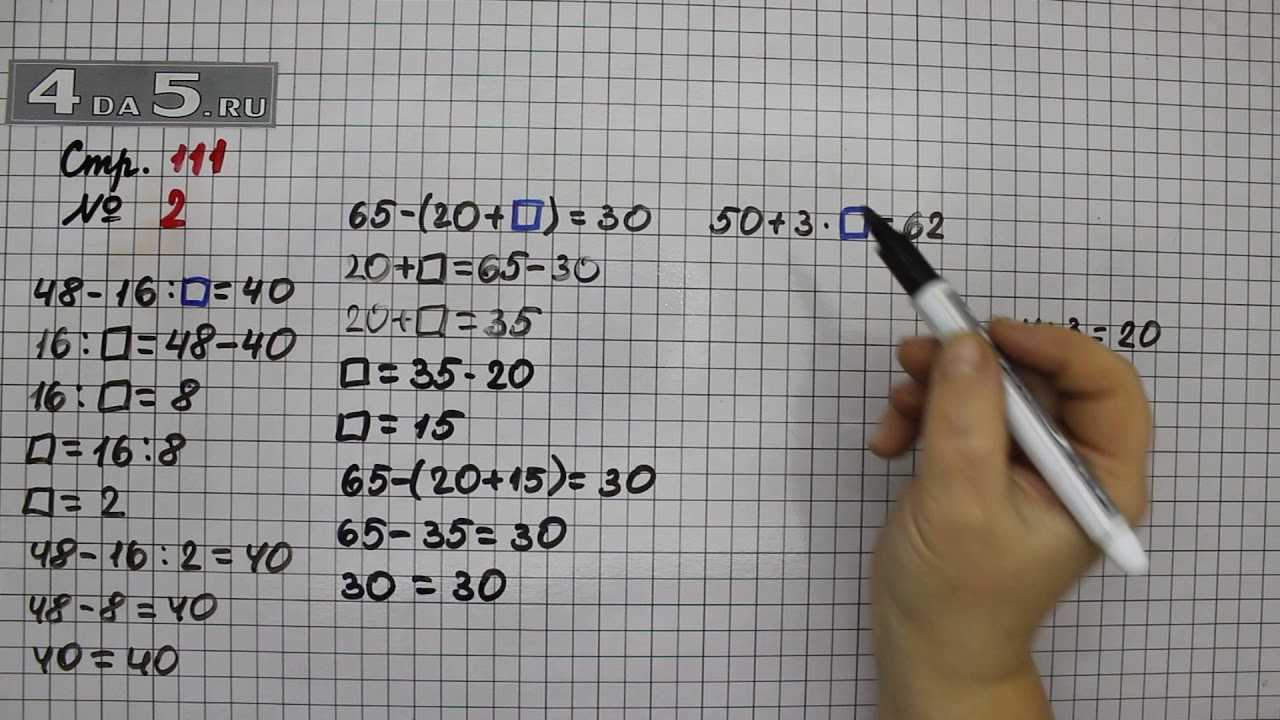 4 DA 5.RU
Стр. 111
№ 2
48-16:□=40
16:□=48-40
16:□=8
□=16:8
□=2
48-16:2=40
48-8=40
40=40
65-(20+□)=30
20+□=65-30
20+□=35
□=35-20
□=15
65-(20+15)=30
65-35=30
30=30
50+3·□=62
=20